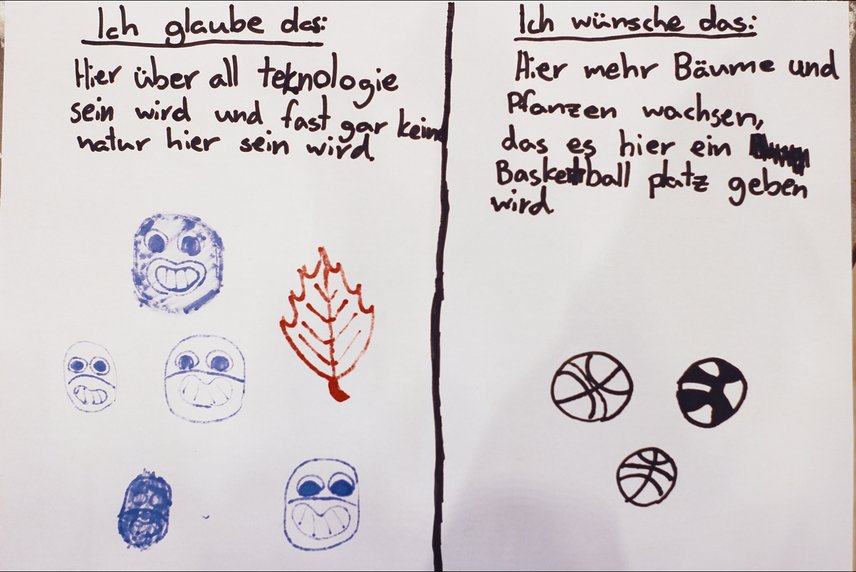 Ich glaube das:
Hier über all teknologie
sein wird und fast gar keine
natur hier sein wird
Ich wünsche das:
Hier mehr Bäume und
Pfanzen wachsen,
das es hier ein
Basketball platz geben
wird